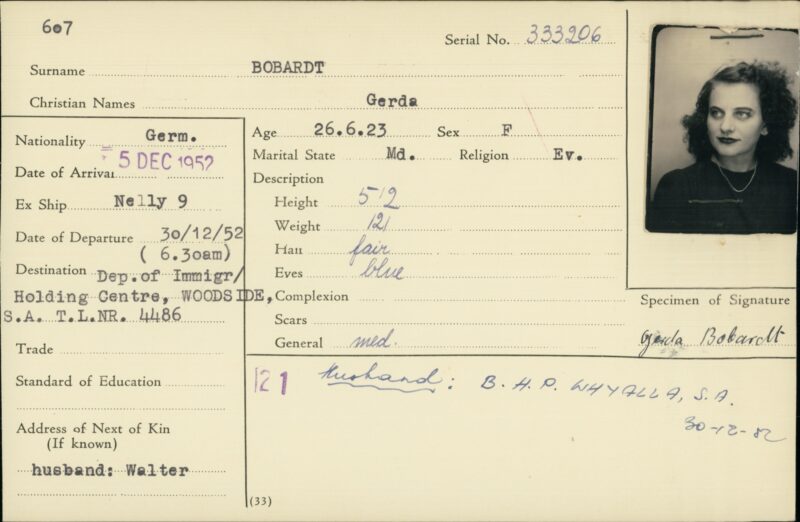 607
Serial No. 333206
Surname BOBARDT
Christian Names Gerda
Nationality Germ.
Date of Arrival 5 DEC 1952
Ex Ship Nelly 9
Date of Departure 30/12/52
( 6.30am)
Destination Dep.of Immigr/
Holding Centre, WOODSIDE,
S.A. T.L.NR. 4486
Trade
Standard of Education
Address of Next of Kin
(If known)
husband: Walter
Age 26.6.23 Sex F
Marital State Md. Religion Ev.
Description
Height 5'2
Weight 121
Hair fair
Eyes blue
Complexion
Scars
General med.
Specimen of Signature
Gerda Bobardt
121 Husband: B.H.P. WHYALLA, S.A.
30-12-52
(33)